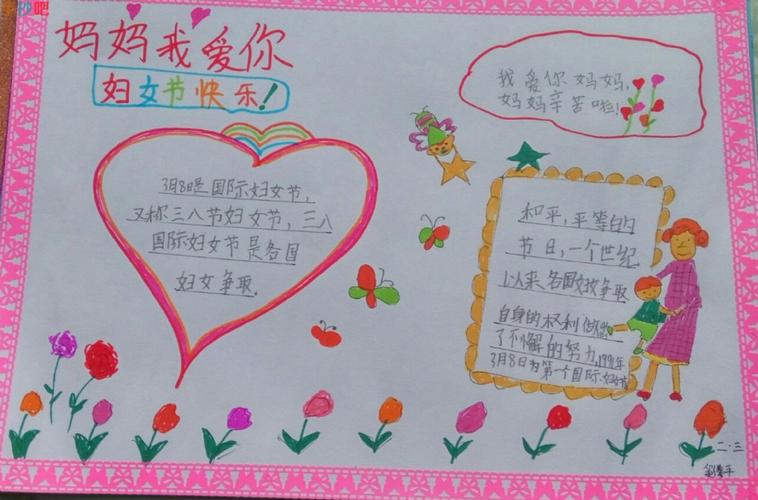 妈妈我爱你
妇女节快乐!
我爱你妈妈,
妈妈辛苦啦!
3月8日是国际妇女节,
又称三八节妇女节,三八
国际妇女节是各国
妇女争取
和平,平等的
节日,一个世纪
以来各国妇女争取
自身的权利做出
了不懈的努力,
3月8日为第一个国际妇女节
二·三